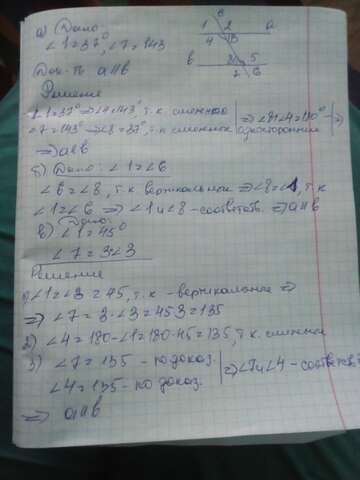 а) Дано:
∠1=37°, ∠7=143
Док-ть a||b
Решение
∠1=37° ⇒ ∠4=143°, т.к. смежные
∠7=143° ⇒ ∠8=37°, т.к. смежные ⇒ односторонние
⇒ a||b
б) Дано: ∠1=∠6
∠6=∠8, т.к вертикальные ⇒ ∠8=∠1, т.к
∠1=∠6 ⇒ ∠1 и ∠8 - соответств. ⇒ a||b
в) Дано:
∠1=45°
∠7=3∠3
Решение
1) ∠1=∠3=45, т.к - вертикальные ⇒
⇒ ∠7=3·∠3=45·3=135
2) ∠4=180-∠1=180-45=135, т.к. смежные
3) ∠7=135 - по доказ.
∠4=135 - по доказ. ⇒ ∠7 и ∠4 - соответств.
⇒ a||b
1 2 a
4 3
b 5
6